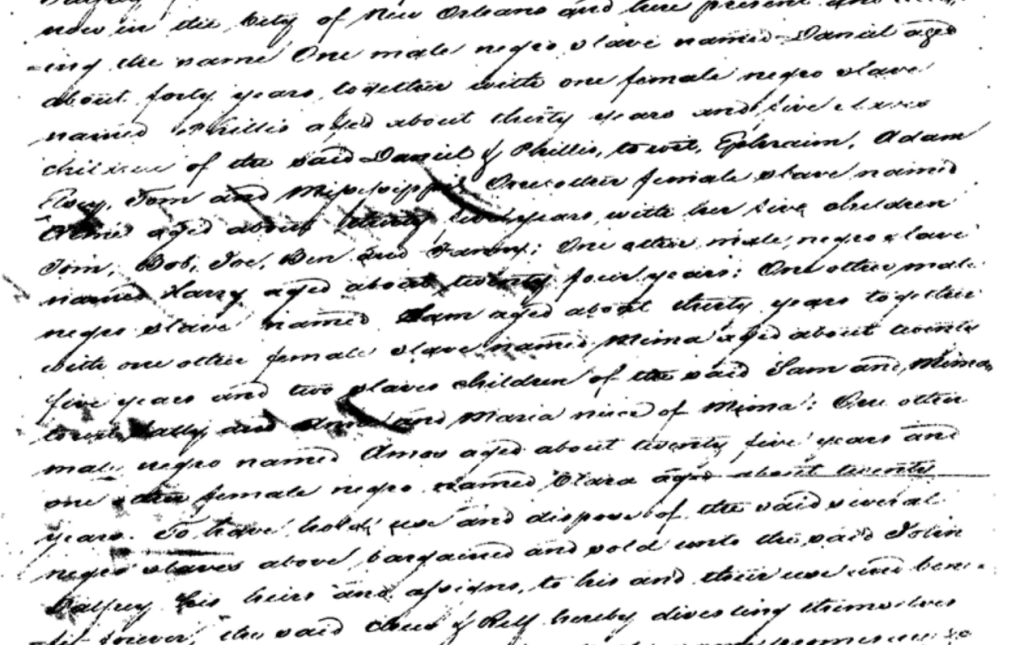 now in the City of New Orleans and here present and
-ing the same One male negro slave named Daniel aged
about forty years, together with one female negro slave
named Phillis aged about thirty years and five slaves
children of the said Daniel & Phillis, to wit, Ephraim, Adam
Tom and Mississippi; One other female slave named
aged about thirty years, with her five children
Tom, Bob, Joe, Ben and Fanny; One other male negro slave
named Harry aged about twenty four years; One other male
negro slave named Sam aged about thirty years together
with one other female slave named Mima aged about twenty
five years and two slaves children of the said Sam and Mima,
to wit, and and Maria niece of Mima; One other
male negro named Amos aged about twenty five years and
one other female negro named Clara aged about twenty
years. To have, hold, use and dispose of the said several
negro slaves above bargained and sold unto the said John
Palfrey his heirs and assigns, to his and their use and bene-
-fit forever, the said Chew & Relf hereby divesting themselves